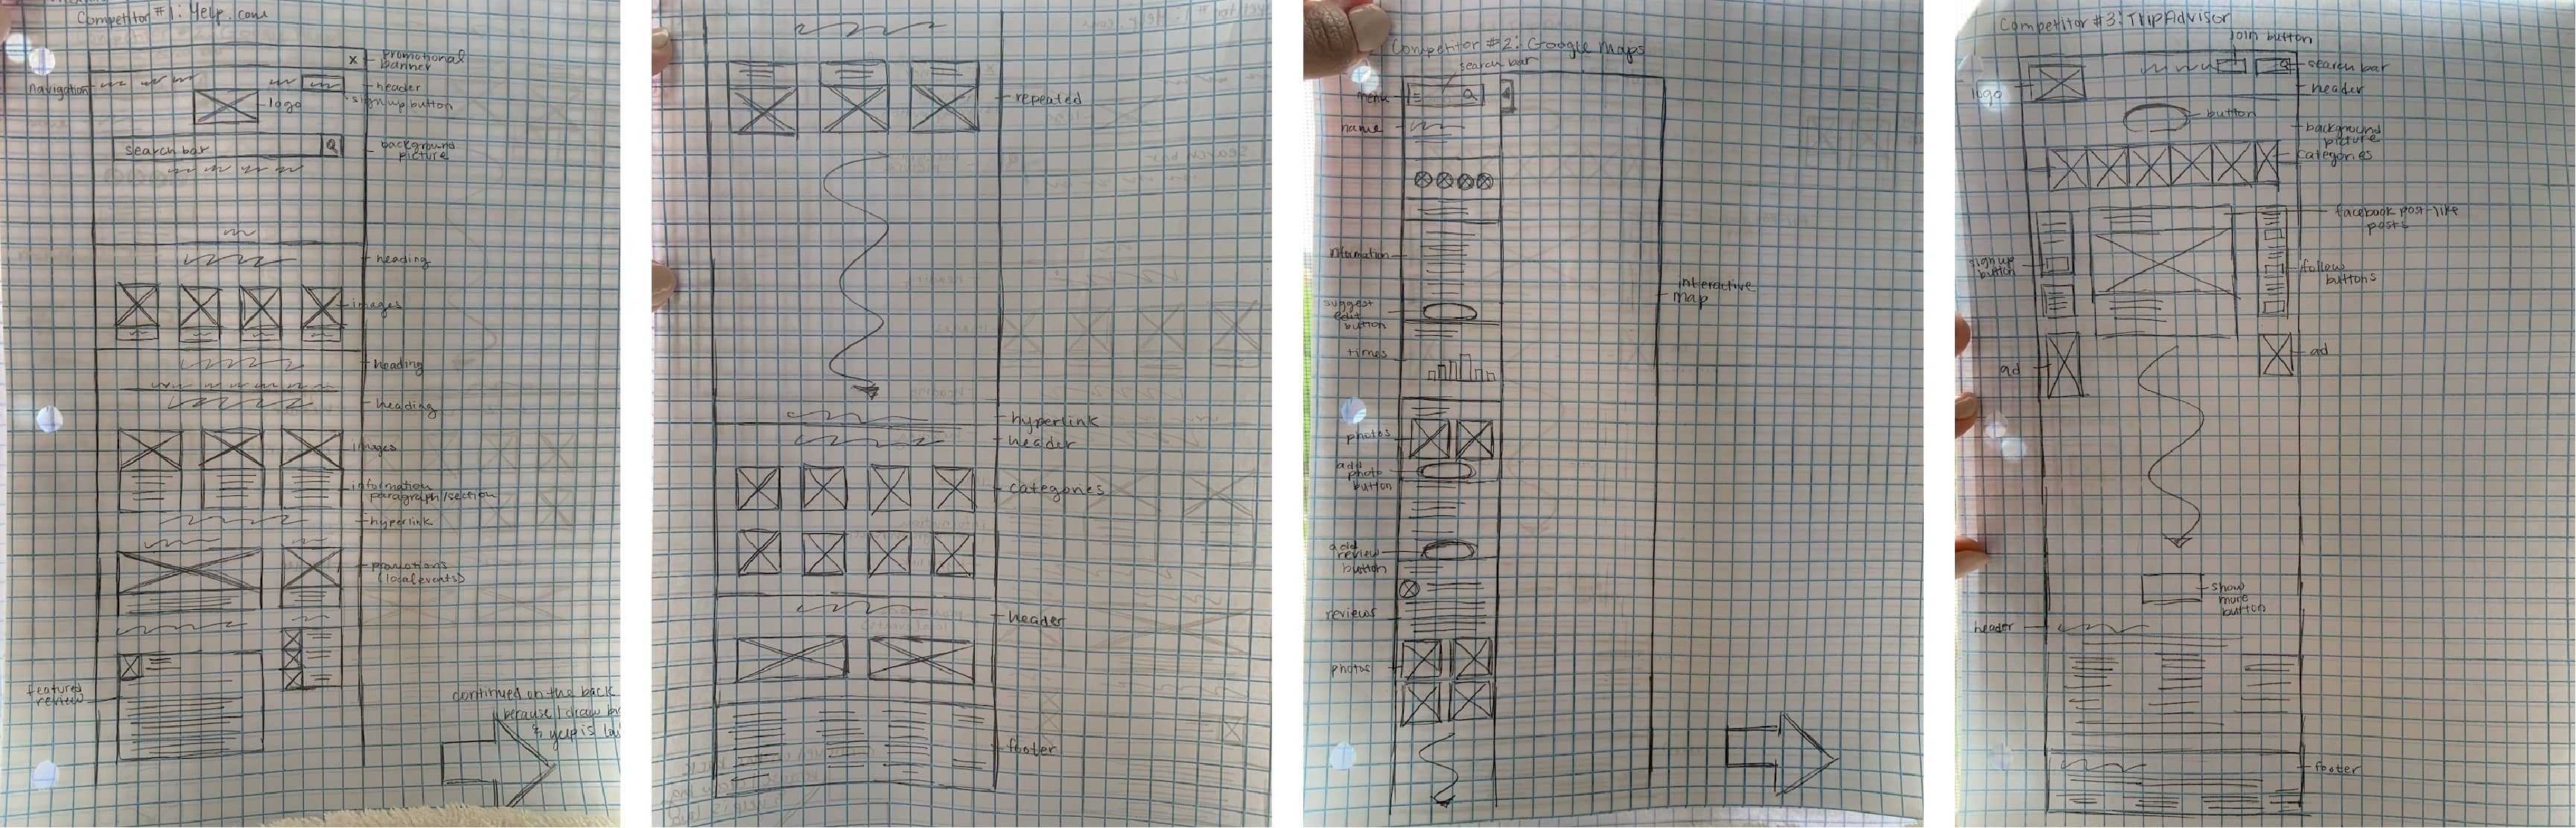 Competitor #1: Yelp.com
promotional
banner
navigation
header
sign up button
logo
search bar
background
picture
heading
images
heading
heading
images
information
paragraph/section
hyperlink
promotions
(local events)
featured
review
continued on the back
because I draw
& yelp is
repeated
hyperlink
header
categories
header
footer
Competitor #2: Google Maps
search bar
menu
name
information
suggest
edit
button
interactive
map
times
photos
add
photo
button
add
review
button
reviews
photos
Competitor #3: TripAdvisor
join button
search bar
logo
header
button
background
picture
categories
facebook post-like
posts
sign up
button
follow
buttons
ad
ad
show
more
button
header
footer